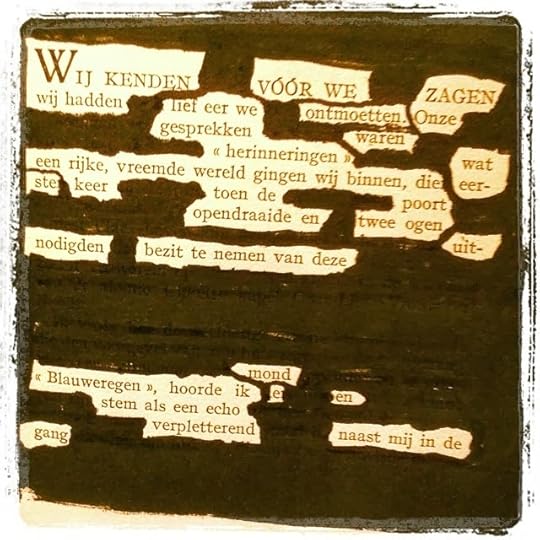 WIJ KENDEN VÓÓR WE ZAGEN
wij hadden lief eer we ontmoetten. Onze
gesprekken waren
« herinneringen » wat
een rijke, vreemde wereld gingen wij binnen, die eer-
ste keer toen de poort
opendraaide en twee ogen
nodigden bezit te nemen van deze uit-
mond
« Blauweregen », hoorde ik en
stem als een echo
gang verpletterend naast mij in de